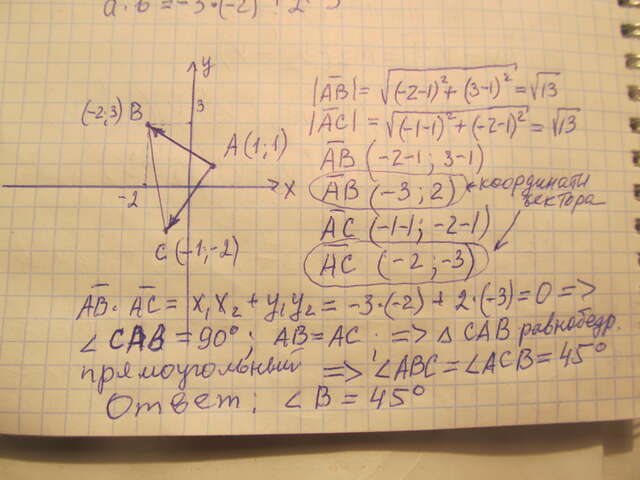 a·b = -3·(-2) + 2·3
y
(-2;3) B
3
A(1;1)
x
-2
C(-1;-2)
|AB| = √(-2-1)²+(3-1)² = √13
|AC| = √(-1-1)²+(-2-1)² = √13
AB (-2-1; 3-1)
AB (-3; 2)
координати
вектора
AC (-1-1; -2-1)
AC (-2; -3)
AB · AC = x₁x₂ + y₁y₂ = -3·(-2) + 2·(-3) = 0 =>
∠ CAB = 90°; AB = AC => △ CAB равнобедр.
прямоугольный => ∠ABC = ∠ACB = 45°
Ответ: ∠ B = 45°